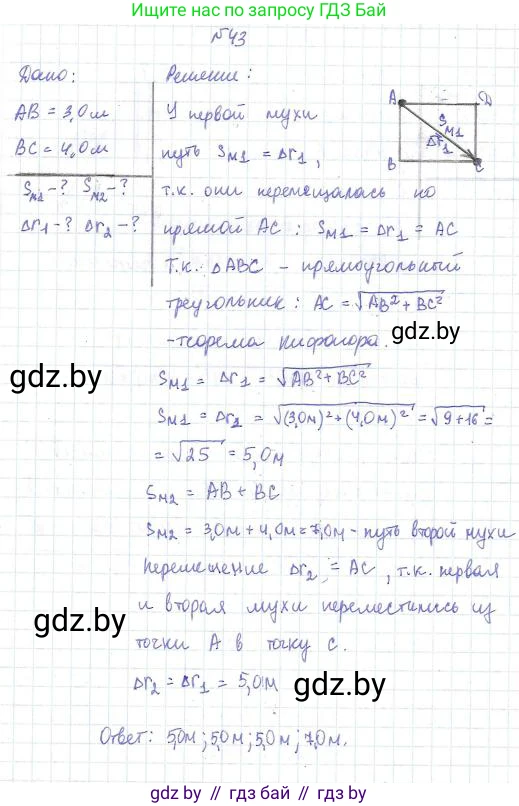 Ищите нас по запросу ГДЗ Бай
№43
Дано:
АВ = 3,0м
ВС = 4,0м
Sм1 - ? Sм2 - ?
Δr1 - ? Δr2 - ?
Решение:
У первой мухи
путь Sм1 = Δr1,
т.к. они перемещалась по
прямой АС : Sм1 = Δr1 = АС
Т.к. ΔАВС - прямоугольный
треугольник : АС = √АВ² + ВС²
- теорема Пифагора.
A D
Sм1
Δr1
B C
gdz.by
gdz.by
Sм1 = Δr1 = √АВ² + ВС²
Sм1 = Δr1 = √(3,0м)² + (4,0м)² = √9+16 =
= √25 = 5,0м
Sм2 = АВ + ВС
Sм2 = 3,0м + 4,0м = 7,0м - путь второй мухи
Перемещение Δr2 = АС, т.к. первая
и вторая мухи переместились из
точки А в точку С.
gdz.by
gdz.by
Δr2 = Δr1 = 5,0м
gdz.by
Ответ: 5,0м ; 5,0м ; 5,0м ; 7,0м.
gdz.by // гдз бай // gdz.by